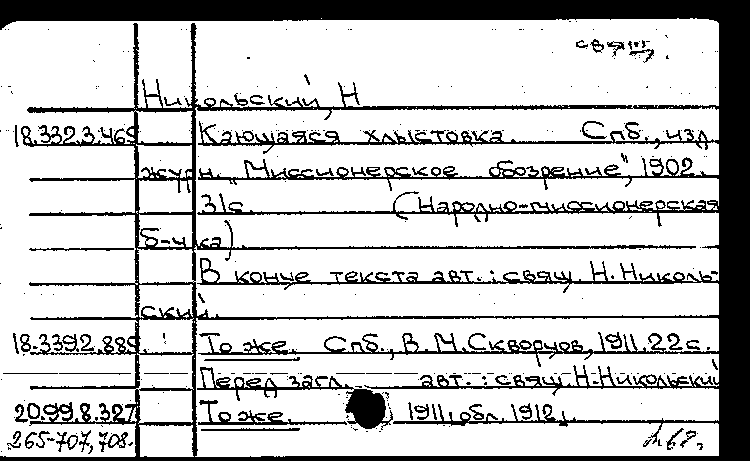 свящ.
Никольский, Н
18.332.3.469 Кающаяся хлыстовка. Спб., изд.
журн. "Миссионерское обозрение", 1902.
31с. (Народно-миссионерская
б-чка).
В конце текста авт.: свящ. Н. Николь-
ский.
18.339.2.889. То же. Спб., В. М. Скворцов, 1911. 22 с.
Перед загл. авт.: свящ. Н. Никольский
20.99.8.327 То же. 1911, обл. 1912.
265-707, 708.